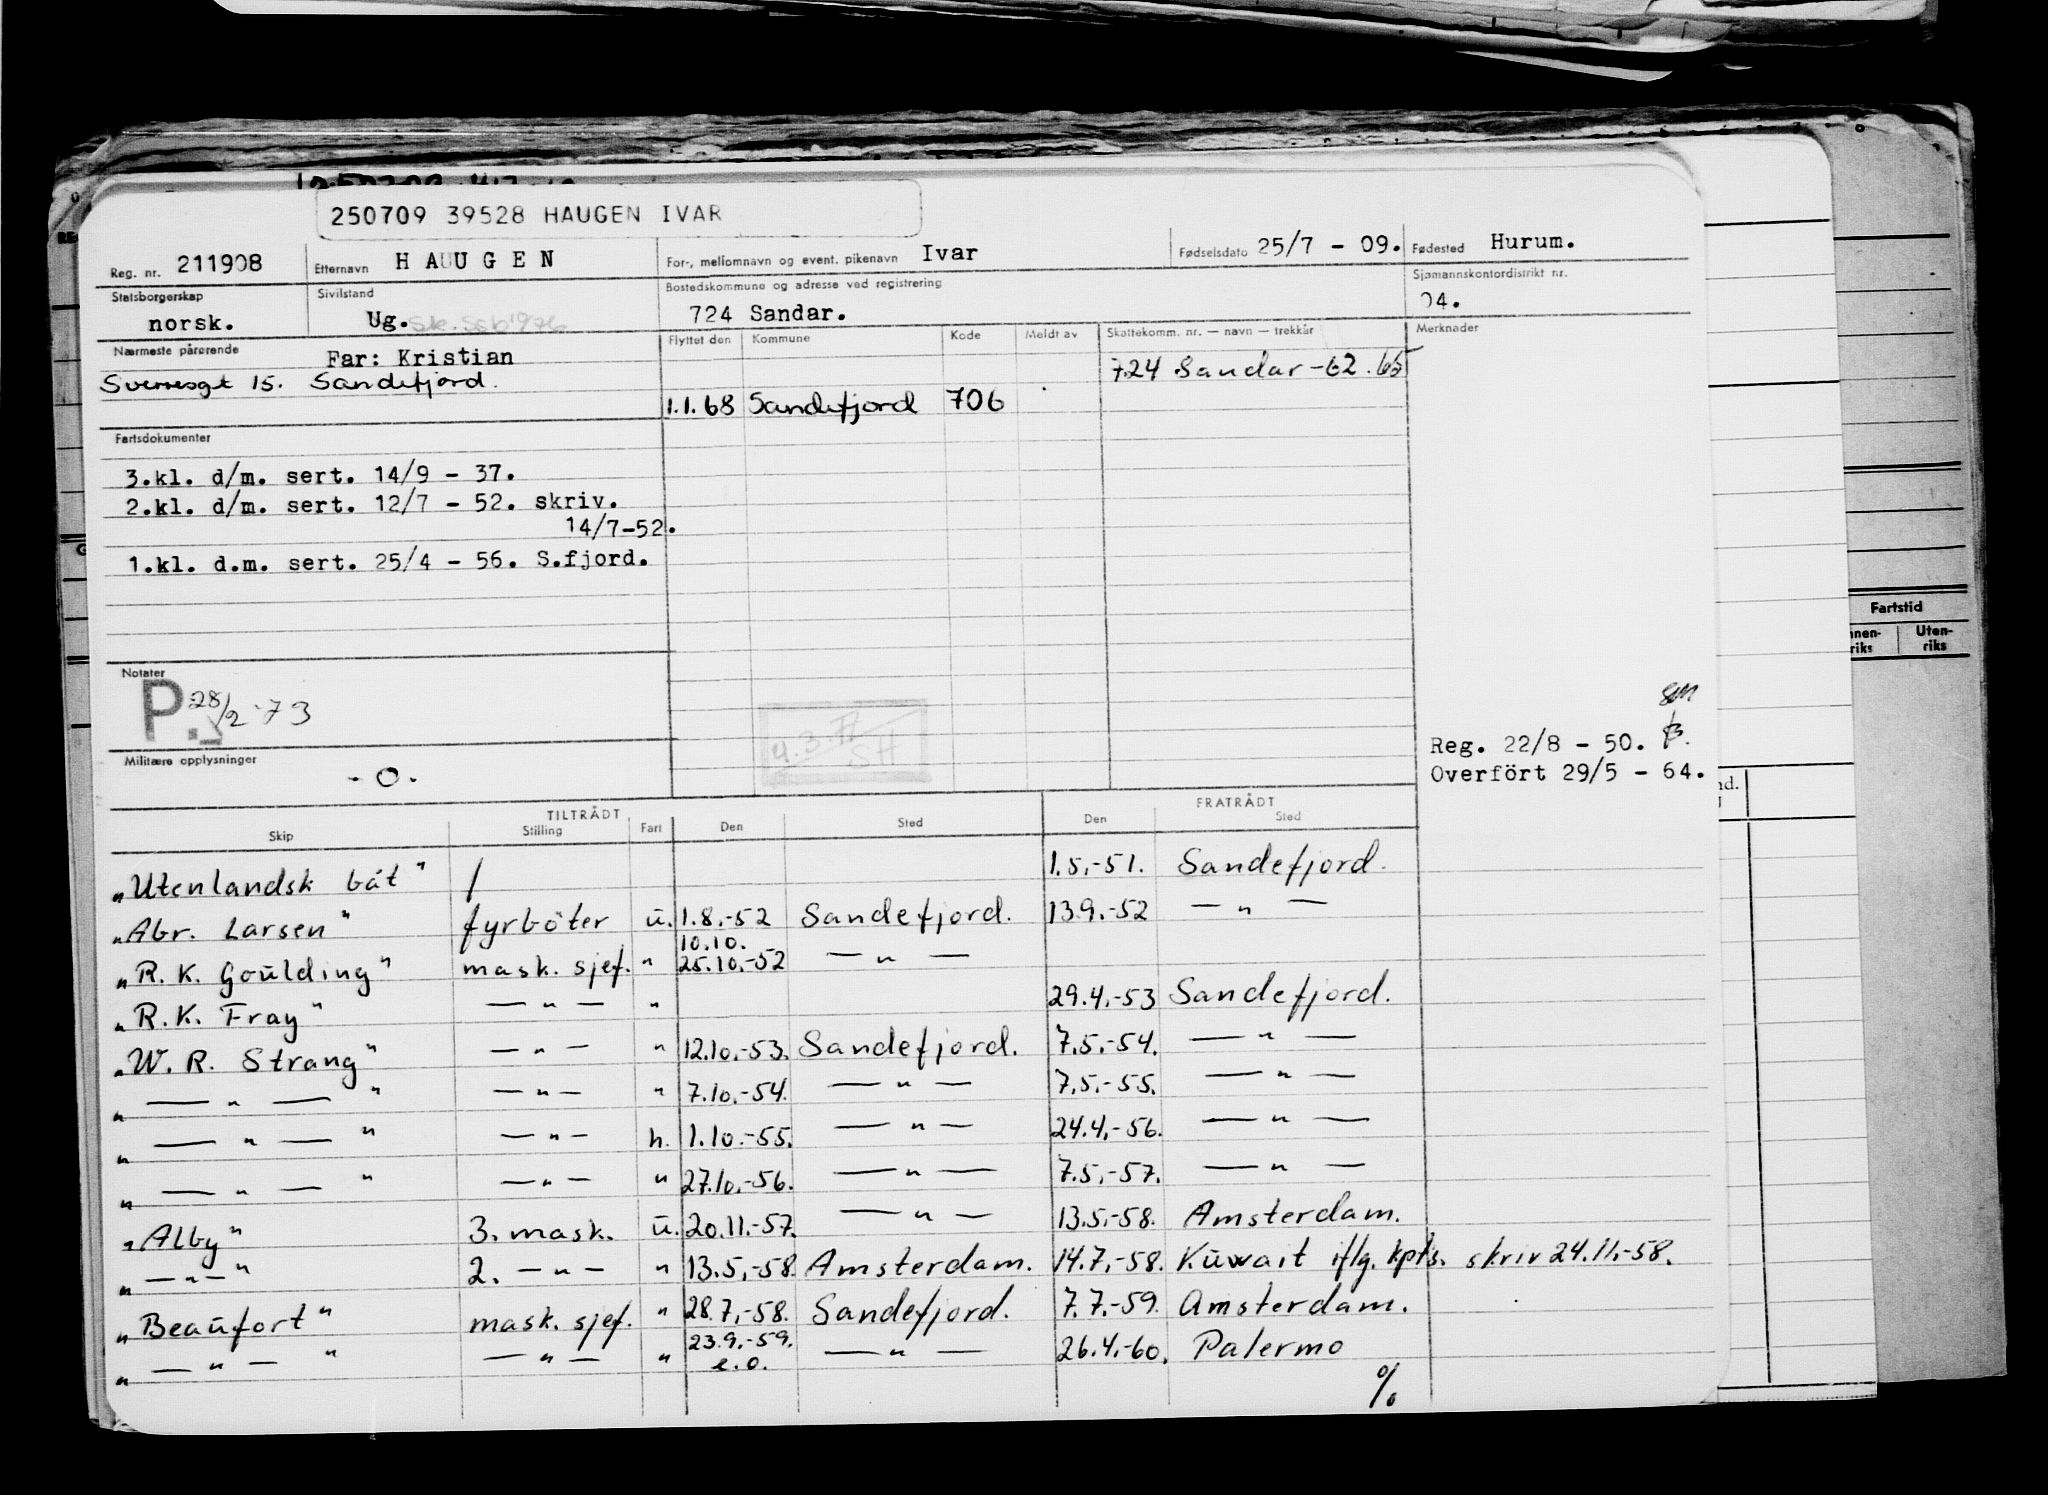 250709 39528 HAUGEN IVAR
Reg. nr. 211908 Etternavn HAUGEN For-, mellomnavn og event. pikenavn Ivar Fødselsdato 25/7 - 09. Fødested Hurum.
Statsborgerskap norsk. Sivilstand Ug. Bostedskommune og adresse ved registrering 724 Sandar. Sjømannskontordistrikt nr. 04.
Nærmeste pårørende Far: Kristian
Sverresgt 15. Sandefjord.
Flyttet den Kommune Kode Meldt av Skattekomm. nr. — navn — trekkår Merknader
724 Sandar -62. 65
1.1.68 Sandefjord 706
Fartsdokumenter
3.kl. d/m. sert. 14/9 - 37.
2.kl. d/m. sert. 12/7 - 52. skriv.
14/7-52.
1.kl. d.m. sert. 25/4 - 56. S.fjord.
Notater
P. 28/2 '73
4.3.77
SH
Militære opplysninger
- 0.
Reg. 22/8 - 50.
Overført 29/5 - 64.
Fartstid
Uten-
riks
TILTRÅDT FRATRÅDT
Skip Stilling Fart Den Sted Den Sted
"Utenlandsk båt" / 1.5.-51. Sandefjord.
"Abr. Larsen" fyrböter u. 1.8.-52 Sandefjord. 13.9.-52 — " —
"R. K. Goulding" mask. sjef. " 10.10. 25.10.-52 — " —
"R.K. Fray" — " — " 29.4.-53 Sandefjord.
"W. R. Strang" — " — " 12.10.-53. Sandefjord. 7.5.-54. — " —
" — " — " — " — " 7.10.-54. — " — 7.5.-55. — " —
" — " — " — " — h. 1.10.-55. — " — 24.4.-56. — " —
" — " — " — " — " 27.10.-56. — " — 7.5.-57. — " —
"Alby" 3. mask. u. 20.11.-57. — " — 13.5.-58. Amsterdam.
" — " — " 2. — " — " 13.5.-58. Amsterdam. 14.7.-58. Kuwait iflg. kpts. skriv 24.11.-58.
"Beaufort" mask. sjef. " 28.7.-58. Sandefjord. 7.7.-59. Amsterdam.
" — " — " — " — " 23.9.-59. e.o. — " — 26.4.-60. Palermo
%